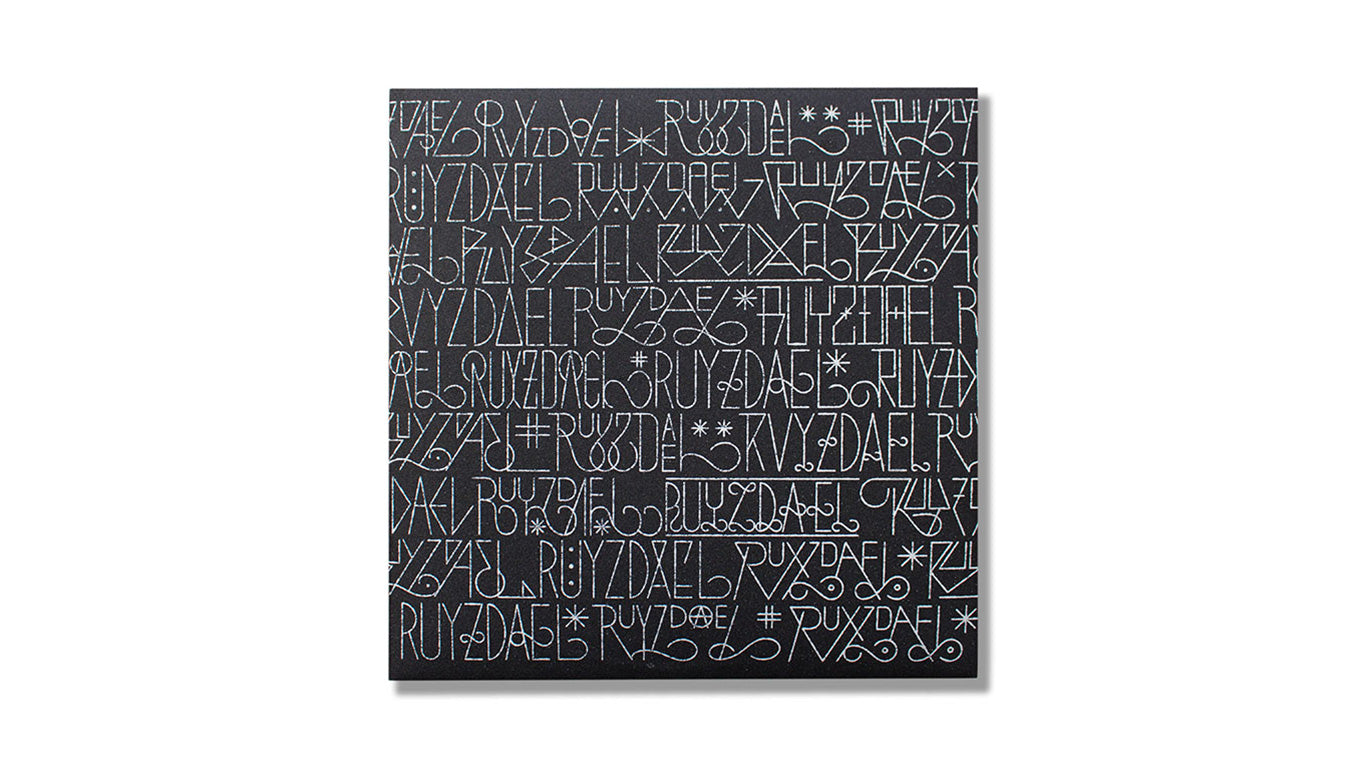 ZDAEL RVYZDAEL * RUYZDAEL ** # RUYZD
RÜYZDAEL RUYZDAEL - RUYZDAEL × R
AEL RUYZDAEL RUYZDAEL RUYZDA
RVYZDAEL RUYZDAEL * RUYZDAEL R
AEL RUYZDAEL # RUYZDAEL * RUYZD
UYZDAEL # RUYZDAEL ** RVYZDAEL RUY
DAEL RUYZDAEL RUYZDAEL RUYZD
YZDAEL RÜYZDAEL RUYZDAEL * RUY
RUYZDAEL * RUYZDAEL # RUYZDAEL *